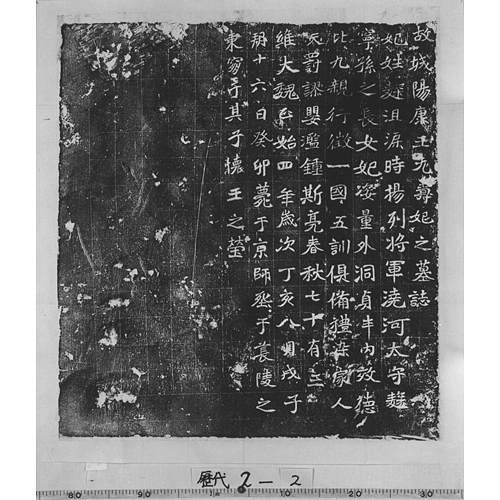 故城陽康王元壽妃之墓誌
妃姓麴沮涼時揚列將軍澆河太守麴
寧孫之長女妃姿量外洞貞半內效德
比九親行徵一國五訓俱備禮染家人
天罰謬嬰濫鍾斯亮春秋七十有三
維大魏正始四年歲次丁亥八月戊子
朔十六日癸卯薨于京師塟于長陵之
東窆于其子懷王之塋
歷代 2-2
80 90 10 20